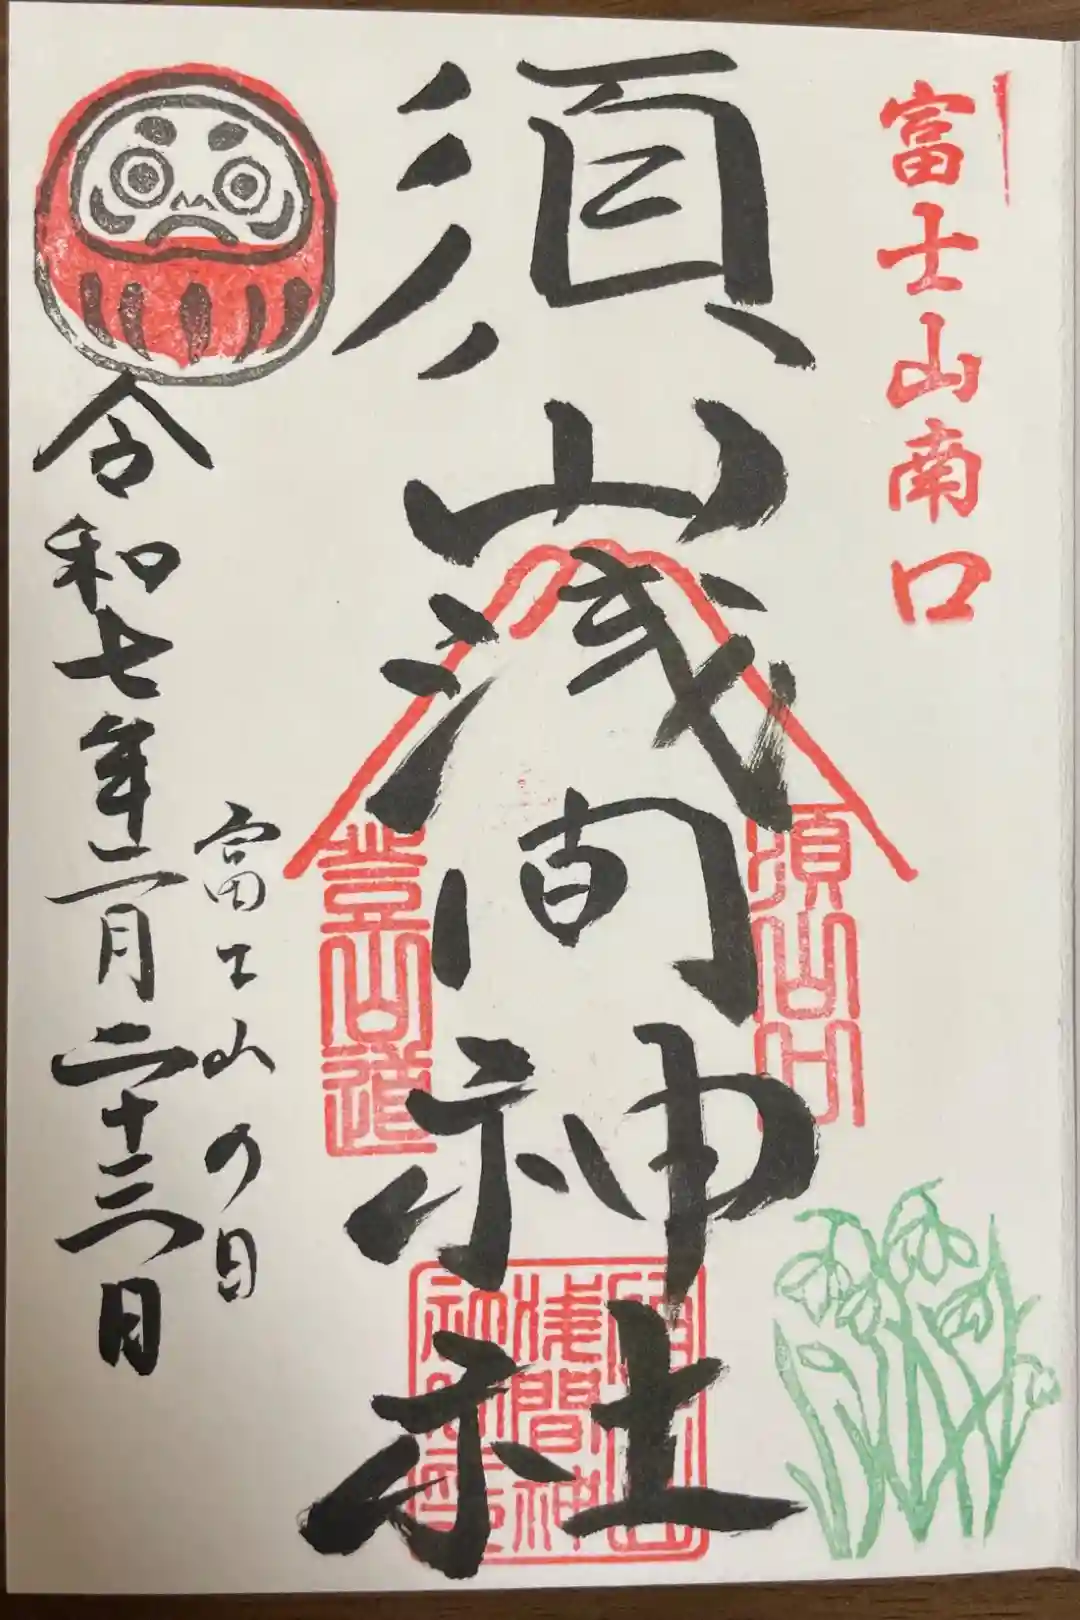 富士山南口
須山浅間神社
須山口
登山道
富士山の日
令和七年二月二十三日